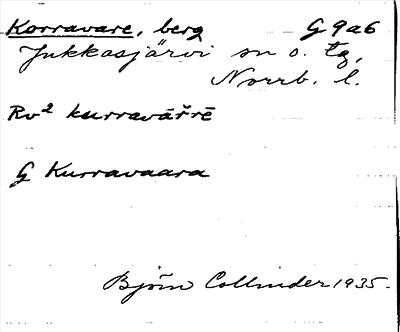 Korravare, berg G 9a6
Jukkasjärvi sn o. tg,
Norrb. l.
Rv² kurravāřrē
G Kurravaara
Björn Collinder 1935.